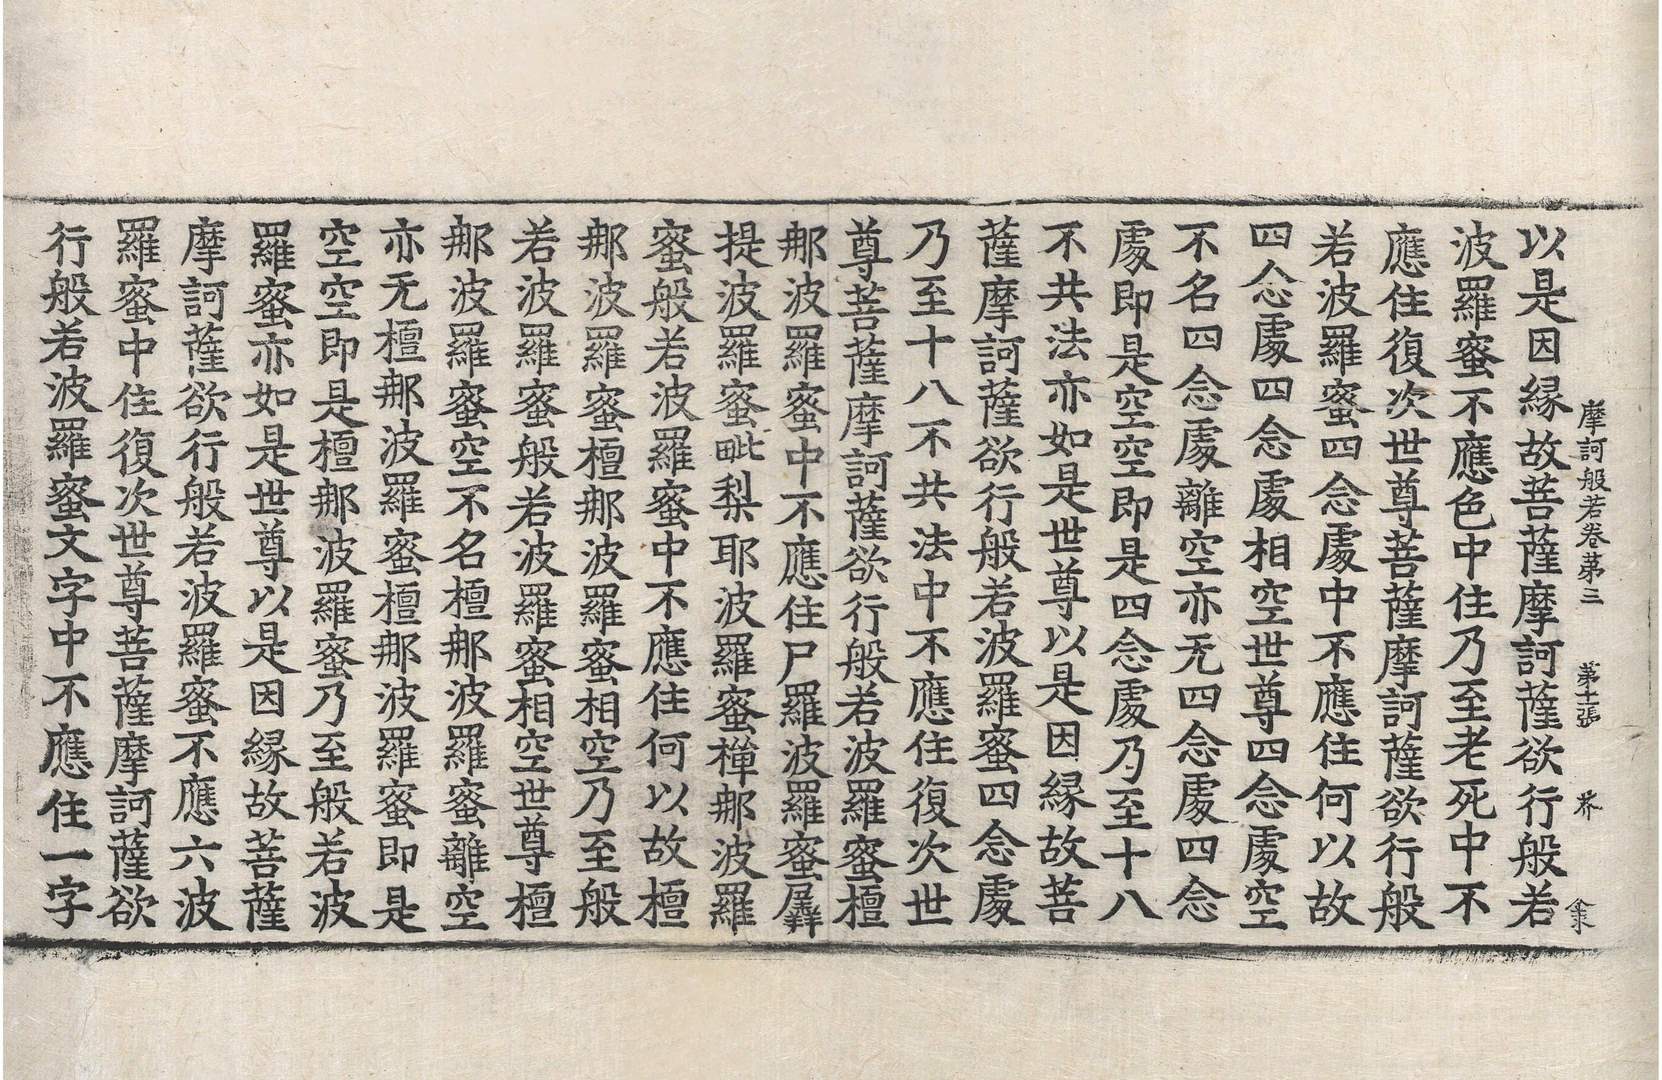 摩訶般若卷第三 第十二張 芥
以是因緣故菩薩摩訶薩欲行般若
波羅蜜不應色中住乃至老死中不
應住復次世尊菩薩摩訶薩欲行般
若波羅蜜四念處中不應住何以故
四念處四念處相空世尊四念處空
不名四念處離空亦无四念處四念
處即是空空即是四念處乃至十八
不共法亦如是世尊以是因緣故菩
薩摩訶薩欲行般若波羅蜜四念處
乃至十八不共法中不應住復次世
尊菩薩摩訶薩欲行般若波羅蜜檀
那波羅蜜中不應住尸羅波羅蜜羼
提波羅蜜毗梨耶波羅蜜禪那波羅
蜜般若波羅蜜中不應住何以故檀
那波羅蜜檀那波羅蜜相空乃至般
若波羅蜜般若波羅蜜相空世尊檀
那波羅蜜空不名檀那波羅蜜離空
亦无檀那波羅蜜檀那波羅蜜即是
空空即是檀那波羅蜜乃至般若波
羅蜜亦如是世尊以是因緣故菩薩
摩訶薩欲行般若波羅蜜不應六波
羅蜜中住復次世尊菩薩摩訶薩欲
行般若波羅蜜文字中不應住一字